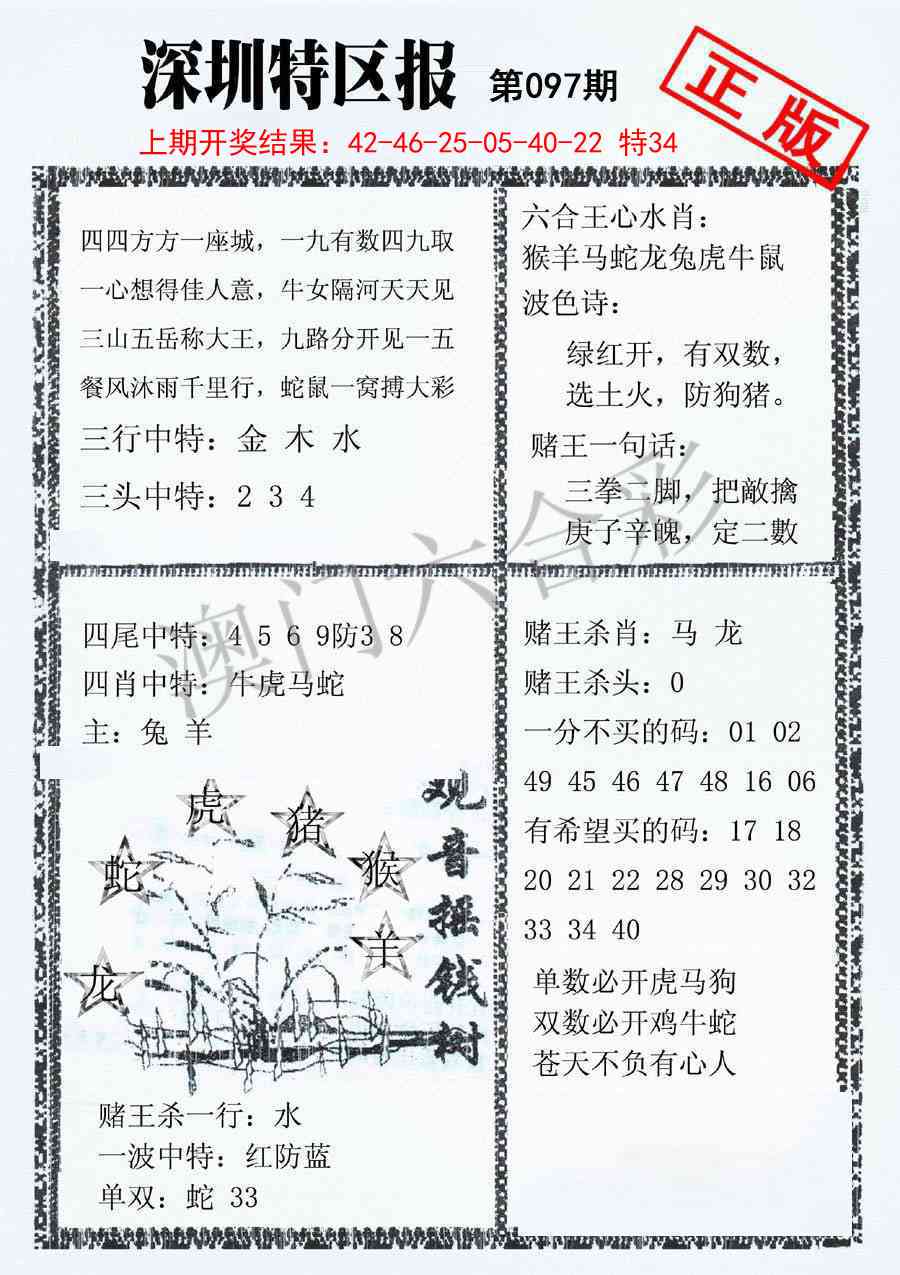 深圳特区报 第097期
正版
上期开奖结果：42-46-25-05-40-22 特34
四四方方一座城，一九有数四九取
一心想得佳人意，牛女隔河天天见
三山五岳称大王，九路分开见一五
餐风沐雨千里行，蛇鼠一窝搏大彩
三行中特：金 木 水
三头中特：2 3 4
六合王心水肖：
猴羊马蛇龙兔虎牛鼠
波色诗：
绿红开，有双数，
选土火，防狗猪。
赌王一句话：
三拳二脚，把敵擒
庚子辛魄，定二數
澳门六合彩
四尾中特：4 5 6 9防3 8
四肖中特：牛虎马蛇
主：兔 羊
虎
猪
蛇
猴
羊
龙
观音摇钱树
赌王杀一行：水
一波中特：红防蓝
单双：蛇 33
赌王杀肖：马 龙
赌王杀头：0
一分不买的码：01 02
49 45 46 47 48 16 06
有希望买的码：17 18
20 21 22 28 29 30 32
33 34 40
单数必开虎马狗
双数必开鸡牛蛇
苍天不负有心人